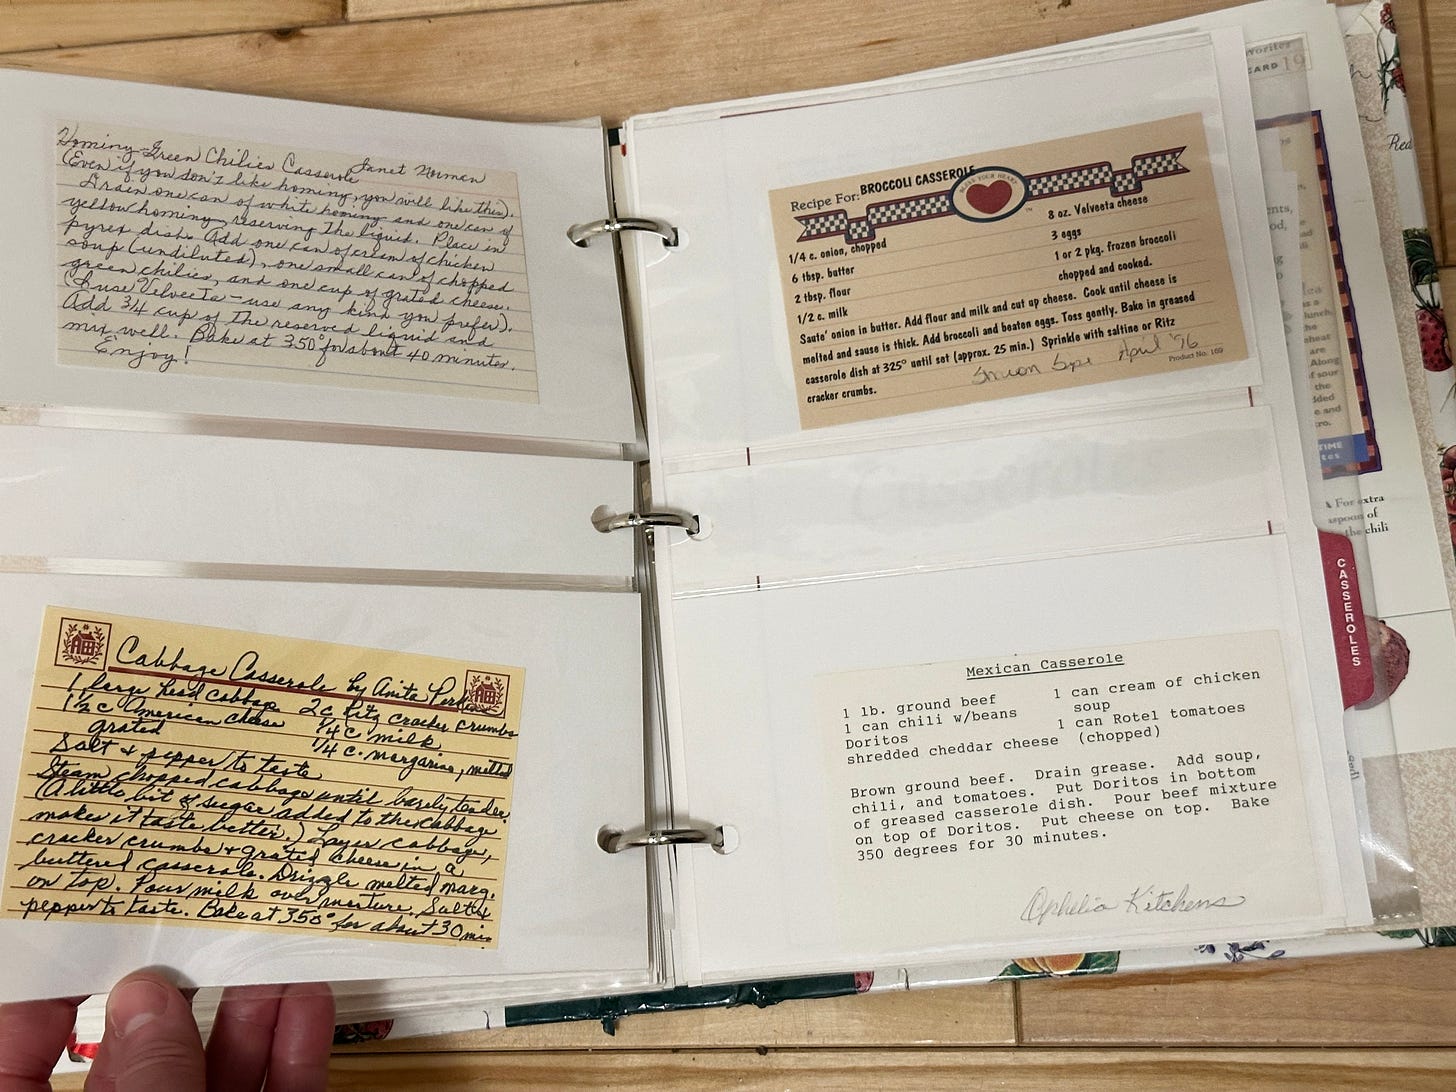 Hominy-Green Chilies Casserole Janet Norman
(Even if you don't like hominy, you will like this).
Drain one can of white hominy and one can of
yellow hominy, reserving the liquid. Place in
pyrex dish. Add one can of cream of chicken
soup (undiluted), one small can of chopped
green chilies, and one cup of grated cheese.
(I use Velveeta - use any kind you prefer).
Add 3/4 cup of the reserved liquid and
mix well. Bake at 350° for about 40 minutes.
Enjoy!
Cabbage Casserole by Anita
1 large head cabbage 2 c Ritz cracker crumbs
1 1/2 c American cheese 1/4 c. milk
grated 1/4 c. margarine, melted
Salt & pepper to taste
Steam chopped cabbage until barely tender.
(A little bit of sugar added to the cabbage
makes it taste better.) Layer cabbage,
cracker crumbs & grated cheese in a
buttered casserole. Drizzle melted marg.
on top. Pour milk over mixture. Salt &
pepper to taste. Bake at 350° for about 30 min
Recipe For: BROCCOLI CASSEROLE
BLESS YOUR HEART
TM
1/4 c. onion, chopped
6 tbsp. butter
2 tbsp. flour
1/2 c. milk
8 oz. Velveeta cheese
3 eggs
1 or 2 pkg. frozen broccoli
chopped and cooked.
Saute' onion in butter. Add flour and milk and cut up cheese. Cook until cheese is
melted and sause is thick. Add broccoli and beaten eggs. Toss gently. Bake in greased
casserole dish at 325° until set (approx. 25 min.) Sprinkle with saltine or Ritz
cracker crumbs.
April '96
Product No. 169
Mexican Casserole
1 lb. ground beef
1 can chili w/beans
Doritos
shredded cheddar cheese
1 can cream of chicken
soup
1 can Rotel tomatoes
(chopped)
Brown ground beef. Drain grease. Add soup,
chili, and tomatoes. Put Doritos in bottom
of greased casserole dish. Pour beef mixture
on top of Doritos. Put cheese on top. Bake
350 degrees for 30 minutes.
Ophelia Kitchens
CARD 19
Red
TIME
For extra
spoon of
the chili
CASSEROLES